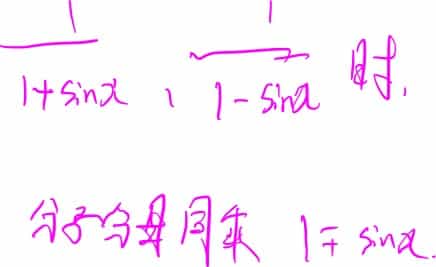 1/(1+sinx)、1/(1-sinx) 时,
分子分母同乘 1∓sinx.